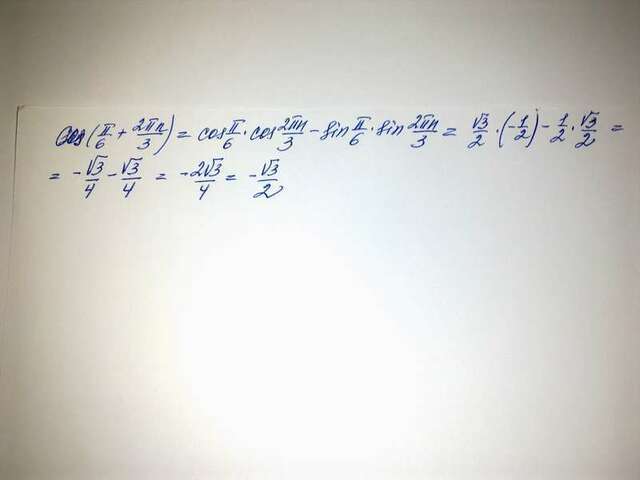 cos(π/6 + 2πn/3) = cos π/6 · cos 2πn/3 − sin π/6 · sin 2πn/3 = √3/2 · (−1/2) − 1/2 · √3/2 =
= −√3/4 − √3/4 = −2√3/4 = −√3/2